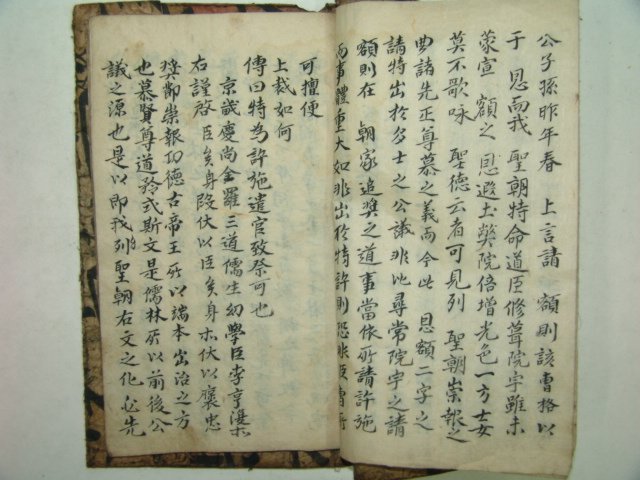 公子孫昨年春 上言請 額則該曹格以
于 恩而我 聖朝特命道臣修葺院宇雖未
蒙宣 額之 恩遐土獘院倍增光色一方士女
莫不歌咏 聖德云者可見列 聖朝崇報之
典諸先正尊慕之義而今此 恩額二字之
請特出於多士之公議非比尋常院宇之請
額則在 朝家追奬之道事當依所請許施
而事體重大如非出於特許則恐非臣曹所
可擅便
上裁如何
傳曰特為許施遣官致祭可也
京畿慶尚全羅三道儒生幼學臣李
右謹啓臣矣身段伏以臣矣身亦伏以褒忠
奬節崇報功德古帝王所以端本出治之方
也慕賢尊道矜式斯文是儒林所以前後公
議之源也是以即我列聖朝右文之化必先